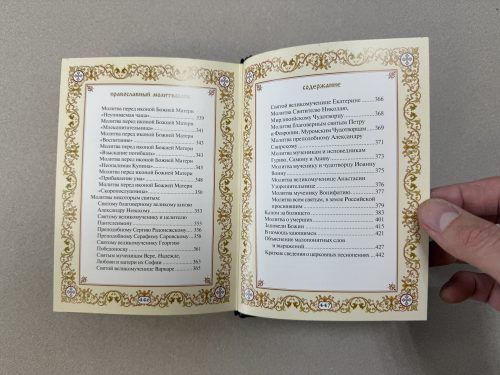 православный молитвослов
Молитва перед иконой Божией Матери
«Неупиваемая чаша» 339
Молитва перед иконой Божией Матери
«Млекопитательница» 341
Молитва перед иконой Божией Матери
«Воспитание» 343
Молитва перед иконой Божией Матери
«Взыскание погибших» 345
Молитва перед иконой Божией Матери
«Неопалимая Купина»
Молитва перед иконой Божией Матери
«Прибавление ума» 348
Молитва перед иконой Божией Матери
«Скоропослушница» 350
Молитвы некоторым святым:
Святому благоверному великому князю
Александру Невскому 353
Святому великомученику и целителю
Пантелеимону 355
Преподобному Сергию Радонежскому 356
Преподобному Серафиму Саровскому 358
Святому великомученику Георгию
Победоносцу 361
Святым мученицам Вере, Надежде,
Любови и матери их Софии 363
Святой великомученице Варваре 365
446
содержание
Святой великомученице Екатерине 366
Молитва Святителю Николаю,
Мирликийскому Чудотворцу 368
Молитва благоверным святым Петру
и Февронии, Муромским Чудотворцам 369
Молитва преподобному Александру
Свирскому 371
Молитва мученикам и исповедникам
Гурию, Самону и Авиву
Молитва мученику и чудотворцу Иоанну
Воину
Молитва великомученице Анастасии
Узорешительнице 376
Молитва мученику Вонифатию 377
Молитва всем святым, в земле Российской
просиявшим 379
Канон за болящего 383
Молитвы о умерших 401
Заповеди Божии 415
В помощь кающимся 421
Объяснение малопонятных слов
и выражений 437
Краткие сведения о церковных песнопениях 442
447